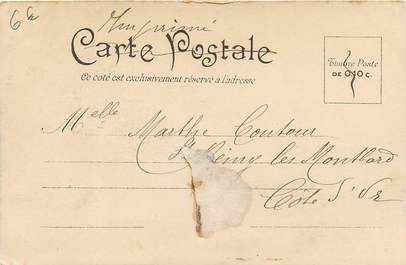 6k
Imprimé
Carte Postale
Ce coté est exclusivement réservé à l'adresse
Timbre Poste
DE 0,10 c.
Melle Marthe Coutour
St Remy les Montbard
Côte d'Or